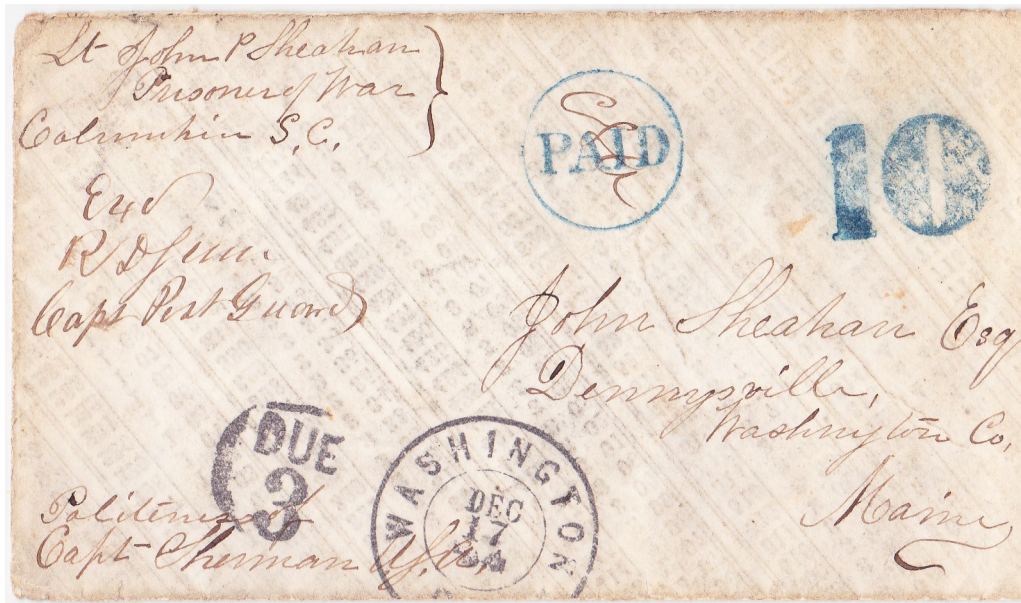 Lt John P Sheahan
Prisoner of War
Columbia S.C.
PAID
10
Exd
Capt Post Guard
John Sheahan Esq
Dennysville,
Washington Co,
Maine
DUE
3
WASHINGTON
DEC
17
64
Politeness of
Capt Sherman